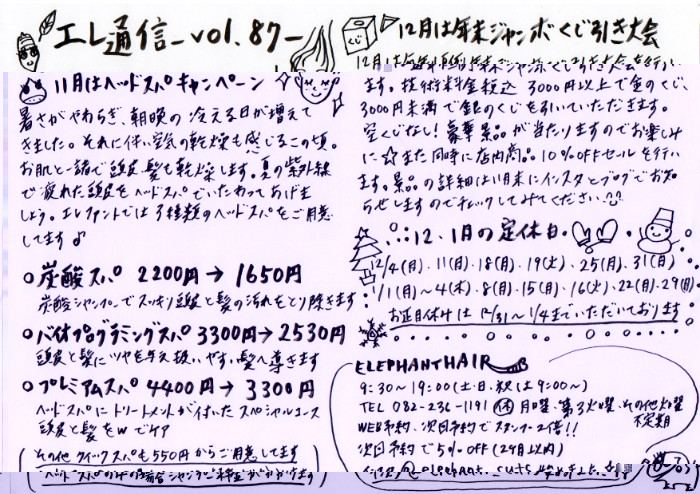 エレ通信-vol.87-
11月はヘッドスパキャンペーン
暑さがやわらぎ、朝晩の冷える日が増えて
きました。それに伴い空気の乾燥も感じるこの頃。
お肌と一緒で頭皮、髪も乾燥します。夏の紫外線
で疲れた頭皮をヘッドスパでいたわってあげま
しょう。エレファントでは3種類のヘッドスパをご用意
してます♪
炭酸スパ 2200円→1650円
炭酸シャンプーでスッキリ頭皮と髪の汚れをとり除きます
バイオプログラミングスパ 3300円→2530円
頭皮と髪にツヤを与え扱いやすい髪へ導きます
プレミアムスパ 4400円→3300円
ヘッドスパにトリートメントが付いたスペシャルコース
頭皮と髪をWでケア
その他クイックスパも550円からご用意してます
くじ
12月は年末ジャンボくじ引き大会
12月は
ます。技術料金税込3000円以上で金のくじ、
3000円未満で銀のくじを引いていただきます。
空くじなし!豪華景品が当たりますのでお楽しみ
に☆また同時に店内商品10%OFFセールを行い
ます。景品の詳細は11月末にインスタとブログでお知
らせしますのでチェックしてみてください
12、1月の定休日
12/4(月)、11(月)、18(月)、19(火)、25(月)、31(日)
1/1(月)~4(木)、8(月)、15(月)、16(火)、22(月)、29(月)
お正月休みは12/31~1/4までいただいております
ELEPHANT HAIR
9:30~19:00(土・日・祝は9:00~)
TEL 082-236-1191 休 月曜、第3火曜、その他火曜
不定期
WEB予約、次回予約でスタンプ2倍!!
次回予約で5%OFF(2ヶ月以内)